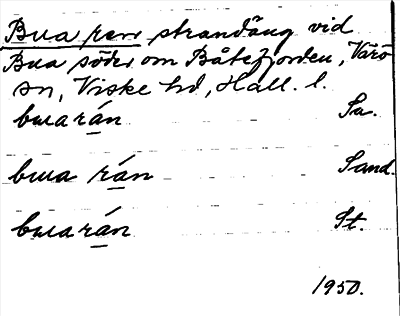 Bua ren strandäng vid
Bua söder om Båtefjorden, Värö
sn, Viske hd, Hall. l.
buarán Sa.
bua rán Sand.
buarán St.
1950.